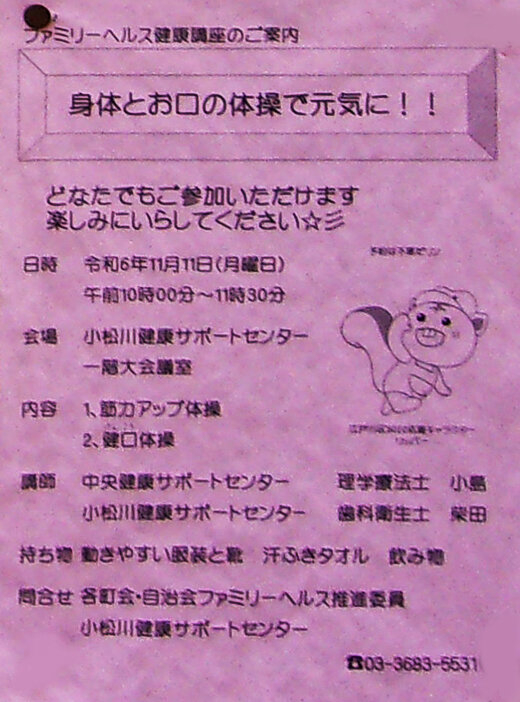 ファミリーヘルス健康講座のご案内
身体とお口の体操で元気に！！
どなたでもご参加いただけます
楽しみにいらしてください☆彡
日時 令和6年11月11日（月曜日）
午前10時00分～11時30分
予約は不要だリン
会場 小松川健康サポートセンター
一階大会議室
内容 1、筋力アップ体操
2、健口体操
講師 中央健康サポートセンター 理学療法士 小島
小松川健康サポートセンター 歯科衛生士 柴田
持ち物 動きやすい服装と靴 汗ふきタオル 飲み物
問合せ 各町会・自治会ファミリーヘルス推進委員
小松川健康サポートセンター
☎03-3683-5531